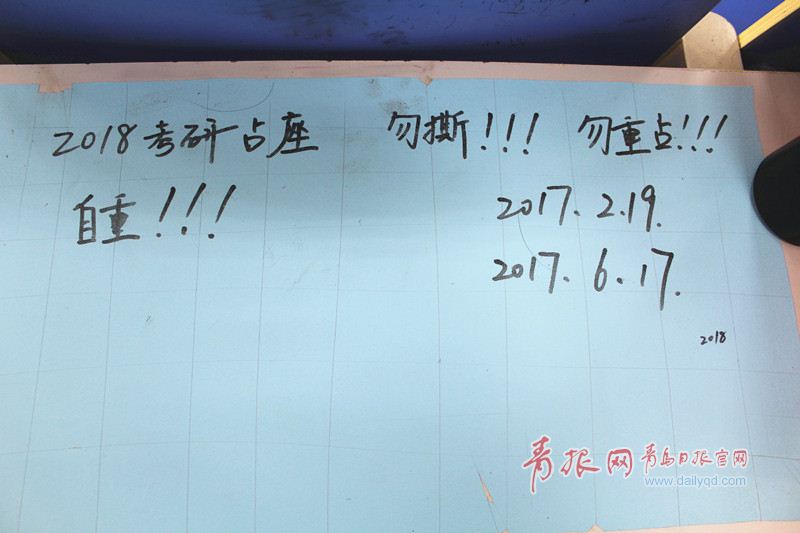 2018考研占座 勿撕!!! 勿重点!!!
自重!!!
2017.2.19.
2017.6.17.
2018
青报网 青岛日报官网
www.dailyqd.com